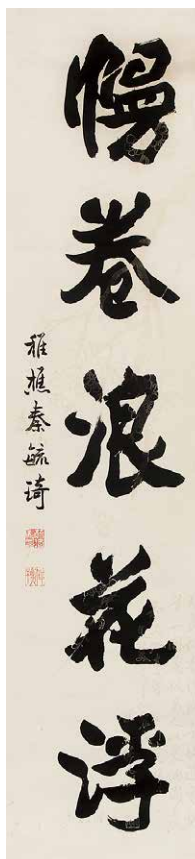 幔卷浪花浮
稚樵秦毓琦